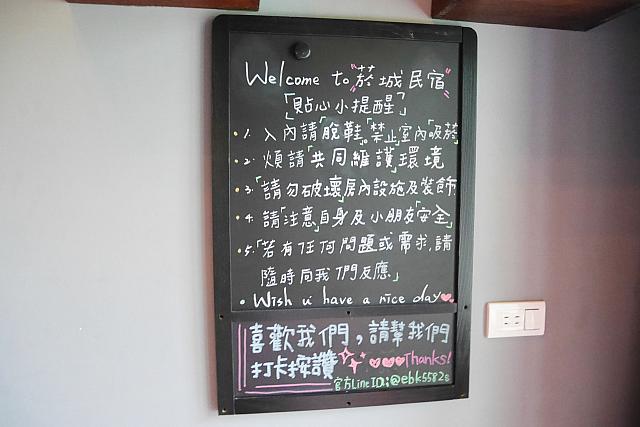 Welcome to "菸城民宿"
「貼心小提醒」
1. 入內請「脫鞋」,「禁止」室內「吸菸」
2. 煩請「共同維護」環境
3.「請勿破壞」房內設施及裝飾
4. 請「注意」自身及小朋友「安全」
5.「若有任何問題或需求,請
隨時向我們反應」
Wish u have a nice day
喜歡我們,請幫我們
打卡按讚 Thanks!
官方Line ID:@ebk5582s